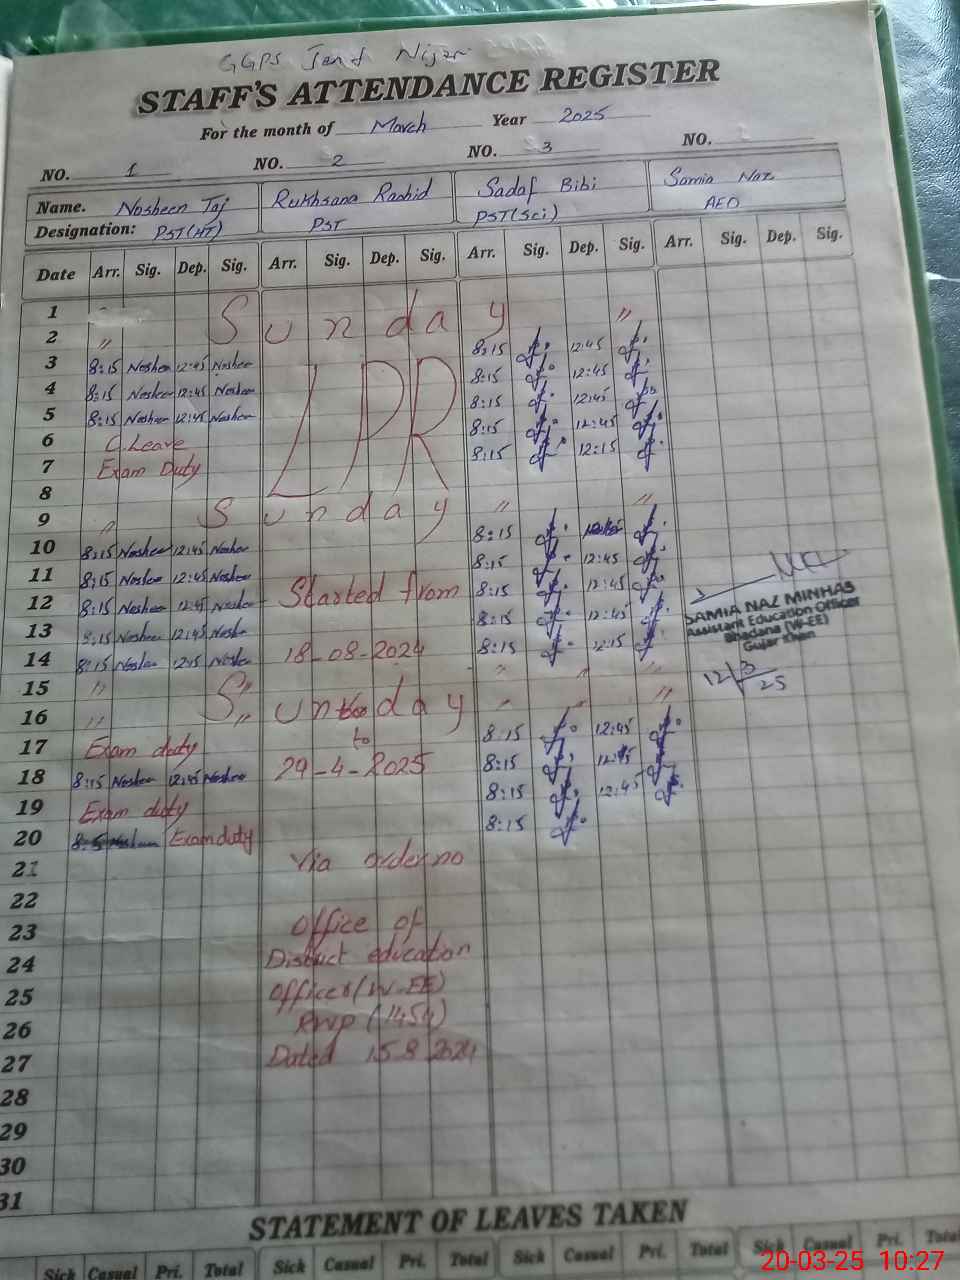 GGPS Jand Nijar
STAFF'S ATTENDANCE REGISTER
For the month of March Year 2025
NO. 1 NO. 2 NO. 3 NO.
Name. Nosheen Taj Rukhsana Rashid Sadaf Bibi Samia Naz
Designation: PST(HT) PST PST(Sci) AEO
Date Arr. Sig. Dep. Sig. Arr. Sig. Dep. Sig. Arr. Sig. Dep. Sig. Arr. Sig. Dep. Sig.
1
2 " Sunday "
3 8:15 Nosheen 12:45 Nosheen 8:15 12:45
4 8:15 Nosheen 12:45 Nosheen LPR 8:15 12:45
5 8:15 Nosheen 12:45 Nosheen 8:15 12:45
6 C.Leave 8:15 12:45
7 Exam Duty 8:15 12:15
8
9 " Sunday " "
10 8:15 Nosheen 12:45 Nosheen 8:15
11 8:15 Nosheen 12:45 Nosheen 8:15 12:45
12 8:15 Nosheen 12:45 Nosheen Started from 8:15 12:45
13 8:15 Nosheen 12:45 Nosheen 8:15 12:45
14 8:15 Nosheen 12:15 Nosheen 18-08-2024 8:15 12:15
15 " " " " "
16 " Sunday " " "
17 Exam duty to 8:15 12:45
18 8:15 Nosheen 12:45 Nosheen 29-4-2025 8:15 12:45
19 Exam duty 8:15 12:45
20 Exam duty 8:15
21 Via order no
22
23 Office of
24 District education
25 Officer(W-EE)
26 RWP (1454)
27 Dated 15.8.2024
28
29
30
31
SAMIA NAZ MINHAS
Assistant Education Officer
Bhadana (W-EE)
Gujar Khan
12/3/25
STATEMENT OF LEAVES TAKEN
Sick Casual Pri. Total Sick Casual Pri. Total Sick Casual Pri. Total Sick Casual Pri. Total
20-03-25 10:27